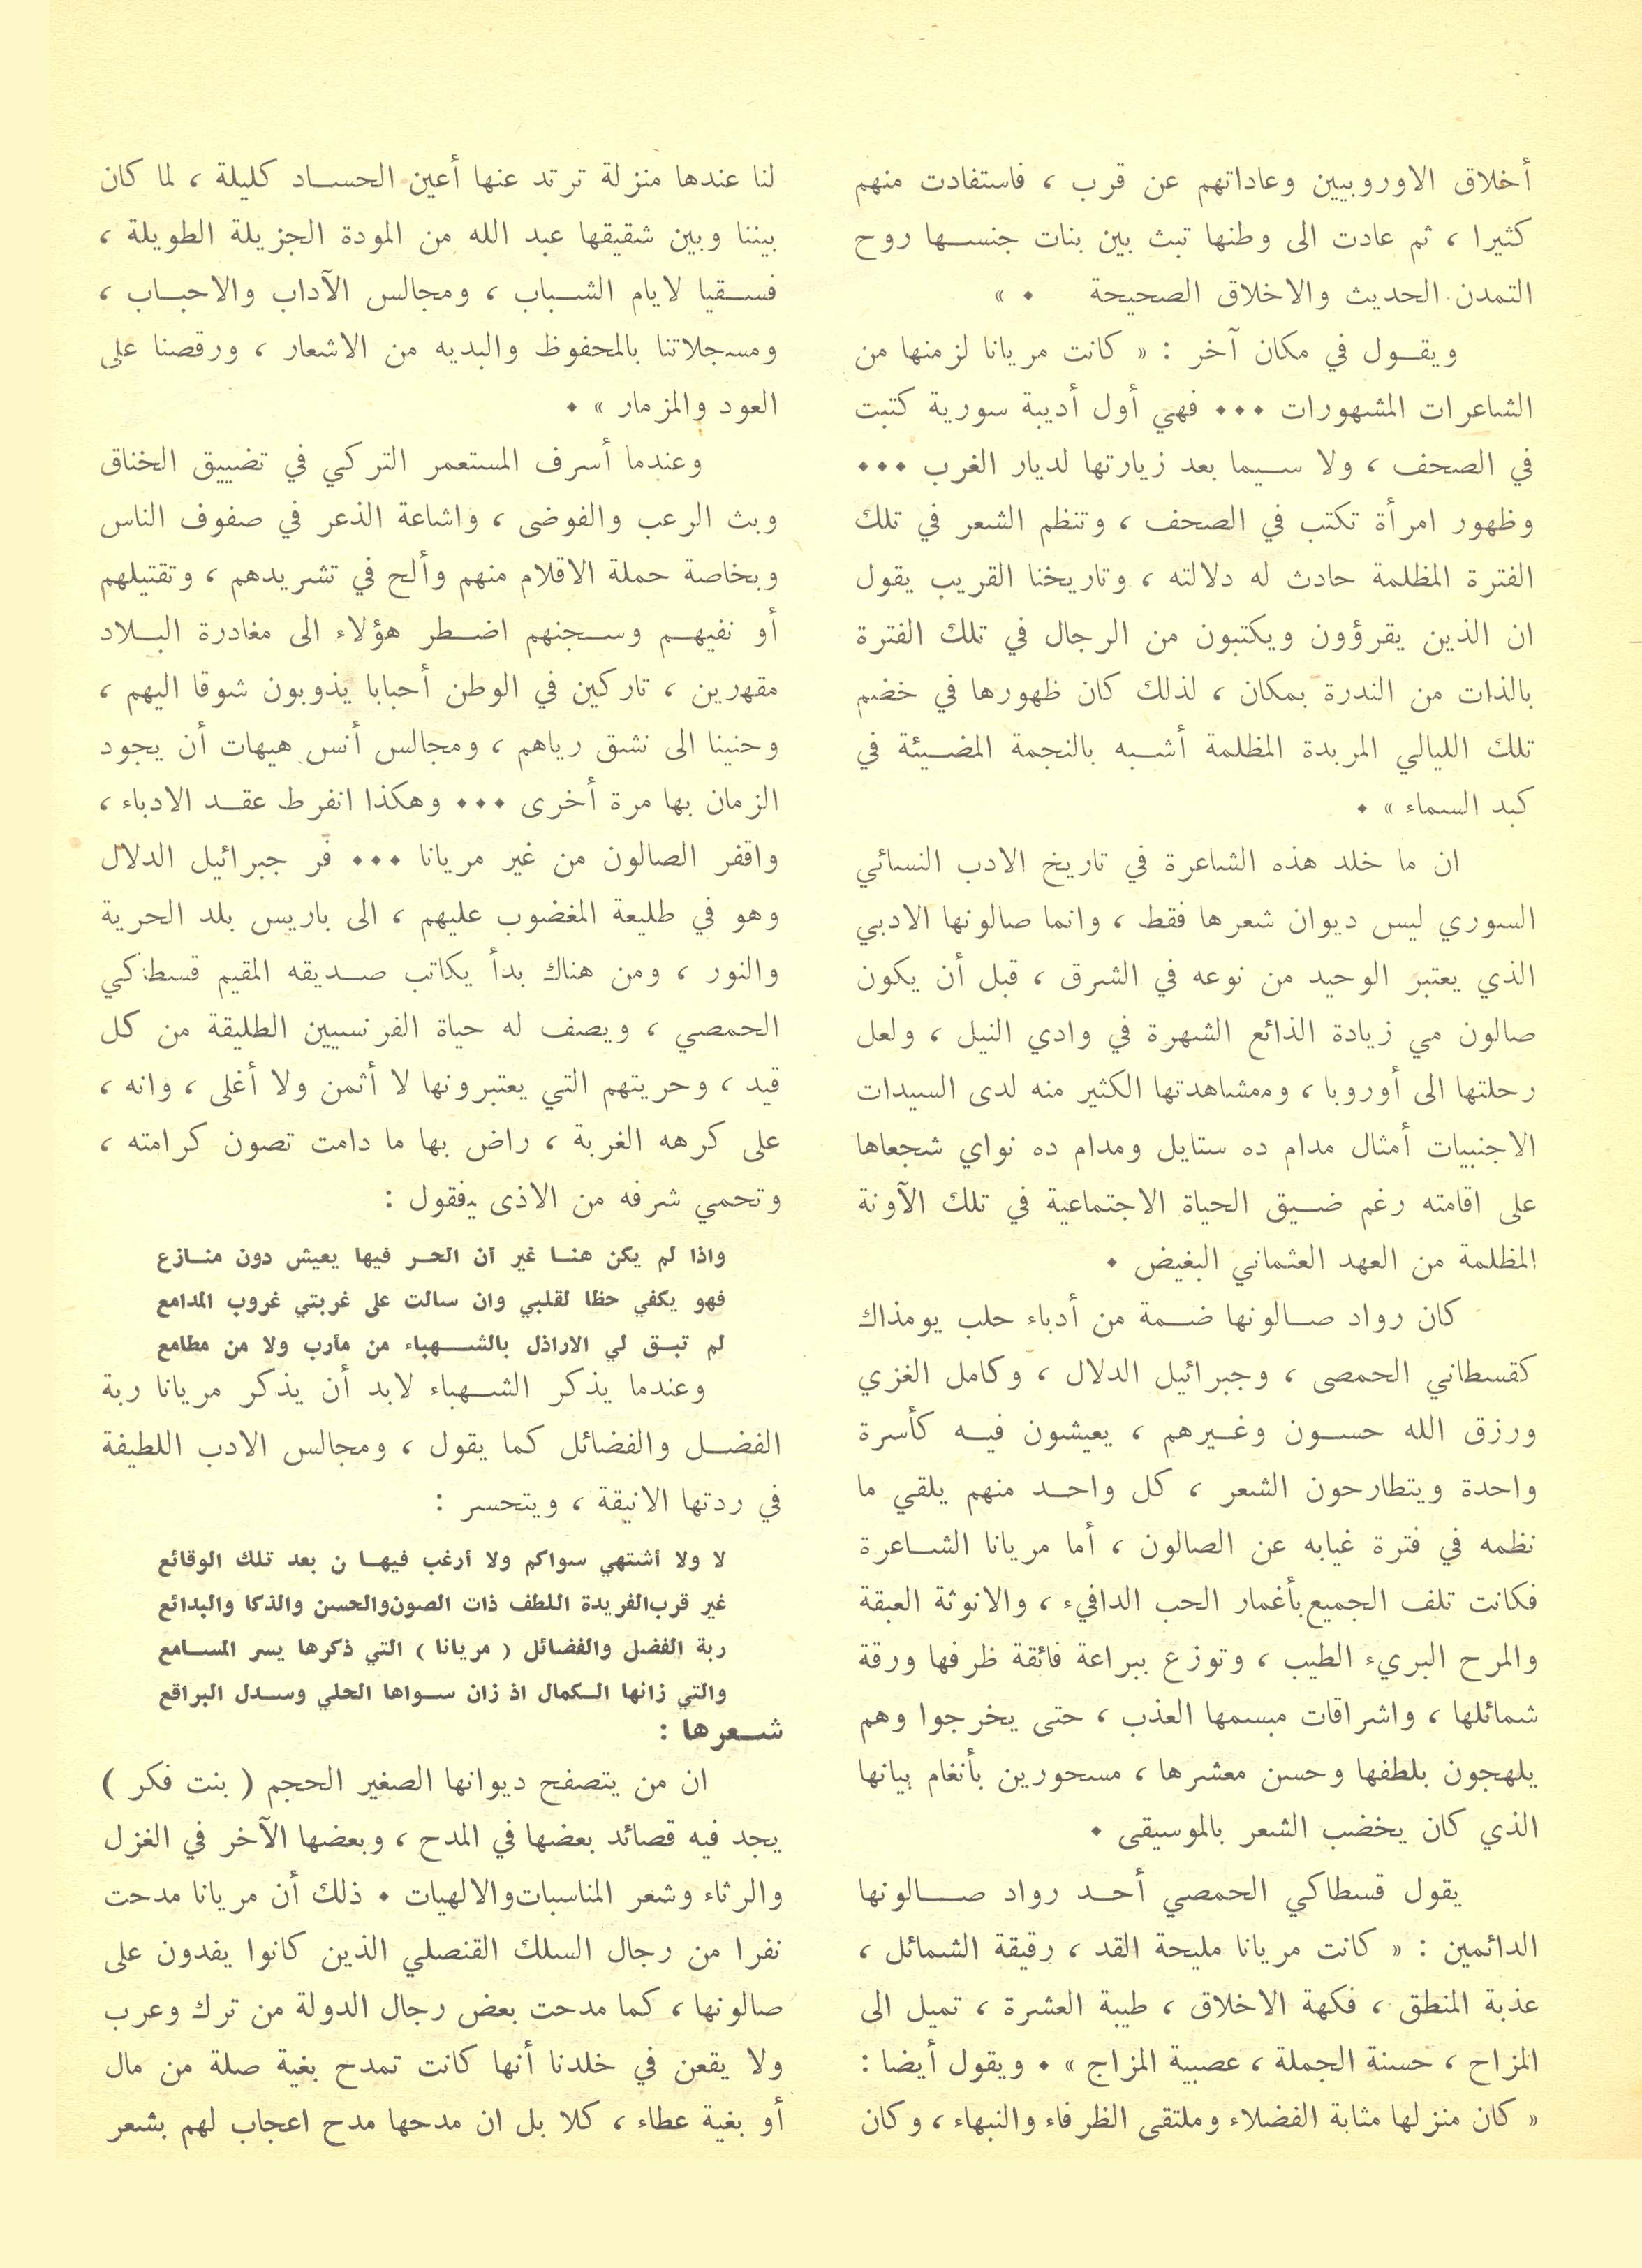 أخلاق الاوروبيين وعاداتهم عن قرب ، فاستفادت منهم
كثيرا ، ثم عادت الى وطنها تبث بين بنات جنسها روح
التمدن الحديث والاخلاق الصحيحة . »
ويقول في مكان آخر : « كانت مريانا لزمنها من
الشاعرات المشهورات ... فهي أول أديبة سورية كتبت
في الصحف ، ولا سيما بعد زيارتها لديار الغرب ...
وظهور امرأة تكتب في الصحف ، وتنظم الشعر في تلك
الفترة المظلمة حادث له دلالته ، وتاريخنا القريب يقول
ان الذين يقرؤون ويكتبون من الرجال في تلك الفترة
بالذات من الندرة بمكان ، لذلك كان ظهورها في خضم
تلك الليالي المربدة المظلمة أشبه بالنجمة المضيئة في
كبد السماء » .
ان ما خلد هذه الشاعرة في تاريخ الادب النسائي
السوري ليس ديوان شعرها فقط ، وانما صالونها الادبي
الذي يعتبر الوحيد من نوعه في الشرق ، قبل أن يكون
صالون مي زيادة الذائع الشهرة في وادي النيل ، ولعل
رحلتها الى أوروبا ، وممشاهدتها الكثير منه لدى السيدات
الاجنبيات أمثال مدام ده ستايل ومدام ده نواي شجعاها
على اقامته رغم ضيق الحياة الاجتماعية في تلك الآونة
المظلمة من العهد العثماني البغيض .
كان رواد صالونها ضمة من أدباء حلب يومذاك
كقسطاني الحمصى ، وجبرائيل الدلال ، وكامل الغزي
ورزق الله حسون وغيرهم ، يعيشون فيه كأسرة
واحدة ويتطارحون الشعر ، كل واحد منهم يلقي ما
نظمه في فترة غيابه عن الصالون ، أما مريانا الشاعرة
فكانت تلف الجميع بأغمار الحب الدافيء ، والانوثة العبقة
والمرح البريء الطيب ، وتوزع ببراعة فائقة ظرفها ورقة
شمائلها ، واشراقات مبسمها العذب ، حتى يخرجوا وهم
يلهجون بلطفها وحسن معشرها ، مسحورين بأنغام بيانها
الذي كان يخضب الشعر بالموسيقى .
يقول قسطاكي الحمصي أحد رواد صالونها
الدائمين : « كانت مريانا مليحة القد ، رقيقة الشمائل ،
عذبة المنطق ، فكهة الاخلاق ، طيبة العشرة ، تميل الى
المزاح ، حسنة الجملة ، عصبية المزاج » . ويقول أيضا :
« كان منزلها مثابة الفضلاء وملتقى الظرفاء والنبهاء ، وكان
لنا عندها منزلة ترتد عنها أعين الحساد كليلة ، لما كان
بيننا وبين شقيقها عبد الله من المودة الجزيلة الطويلة ،
فسقيا لايام الشباب ، ومجالس الآداب والاحباب ،
ومسجلاتنا بالمحفوظ والبديه من الاشعار ، ورقصنا على
العود والمزمار » .
وعندما أسرف المستعمر التركي في تضييق الخناق
وبث الرعب والفوضى ، واشاعة الذعر في صفوف الناس
وبخاصة حملة الاقلام منهم وألح في تشريدهم ، وتقتيلهم
أو نفيهم وسجنهم اضطر هؤلاء الى مغادرة البلاد
مقهرين ، تاركين في الوطن أحبابا يذوبون شوقا اليهم ،
وحنينا الى نشق رياهم ، ومجالس أنس هيهات أن يجود
الزمان بها مرة أخرى ... وهكذا انفرط عقد الادباء ،
واقفر الصالون من غير مريانا ... فر جبرائيل الدلال
وهو في طليعة المغضوب عليهم ، الى باريس بلد الحرية
والنور ، ومن هناك بدأ يكاتب صديقه المقيم قسطاكي
الحمصي ، ويصف له حياة الفرنسيين الطليقة من كل
قيد ، وحريتهم التي يعتبرونها لا أثمن ولا أغلى ، وانه ،
على كرهه الغربة ، راض بها ما دامت تصون كرامته ،
وتحمي شرفه من الاذى يفقول :
واذا لم يكن هنا غير أن الحر فيها يعيش دون منازع
فهو يكفي حظا لقلبي وان سالت على غربتي غروب المدامع
لم تبق لي الاراذل بالشهباء من مأرب ولا من مطامع
وعندما يذكر الشهباء لابد أن يذكر مريانا ربة
الفضل والفضائل كما يقول ، ومجالس الادب اللطيفة
في ردتها الانيقة ، ويتحسر :
لا ولا أشتهي سواكم ولا أرغب فيها ن بعد تلك الوقائع
غير قرب الفريدة اللطف ذات الصون والحسن والذكا والبدائع
ربة الفضل والفضائل ( مريانا ) التي ذكرها يسر المسامع
والتي زانها الكمال اذ زان سواها الحلي وسدل البراقع
شعرها :
ان من يتصفح ديوانها الصغير الحجم ( بنت فكر )
يجد فيه قصائد بعضها في المدح ، وبعضها الآخر في الغزل
والرثاء وشعر المناسبات والالهيات . ذلك أن مريانا مدحت
نفرا من رجال السلك القنصلي الذين كانوا يفدون على
صالونها ، كما مدحت بعض رجال الدولة من ترك وعرب
ولا يقعن في خلدنا أنها كانت تمدح بغية صلة من مال
أو بغية عطاء ، كلا بل ان مدحها مدح اعجاب لهم بشعر